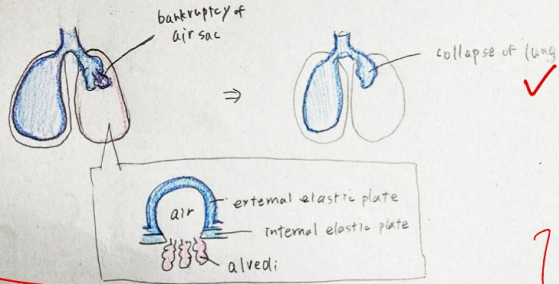 bankruptcy of
air sac
collapse of lung
air
external elastic plate
internal elastic plate
alvedi